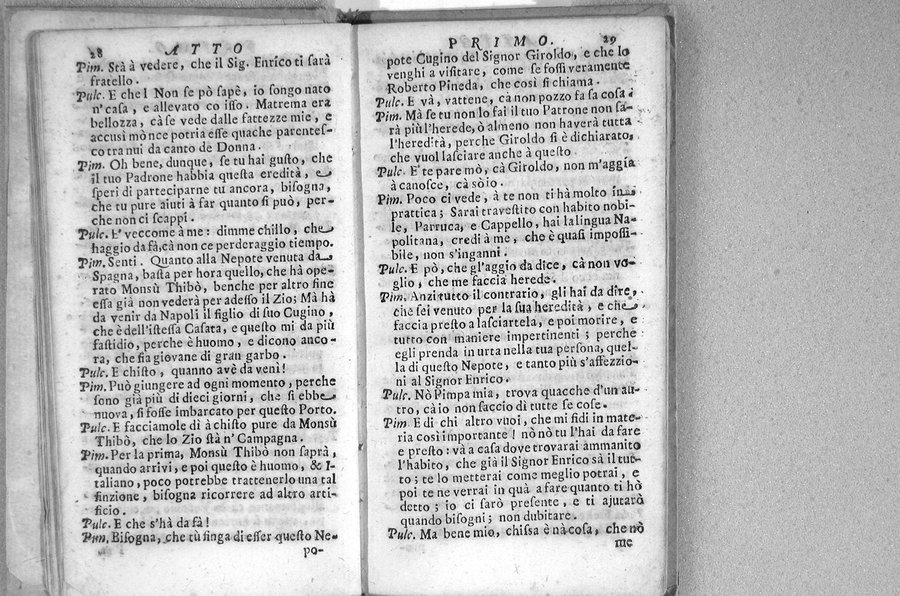 28 ATTO
Pim. Stà à vedere, che il Sig. Enrico ti sarà
fratello.
Pulc. E che! Non se pò sapè, io songo nato
n'casa, e allevato co isso. Matrema era
bellozza, cà se vede dalle fattezze mie, e
accusì mò nce potria esse quache parentes-
co tra nui da canto de Donna.
Pim. Oh bene, dunque, se tu hai gusto, che
il tuo Padrone habbia questa eredità, e
speri di parteciparne tu ancora, bisogna,
che tu pure aiuti à far quanto si può, per-
che non ci scappi.
Pulc. E' veccome à me: dimme chillo, che
haggio da fà, cà non ce perderaggio tiempo.
Pim. Senti. Quanto alla Nepote venuta da
Spagna, basta per hora quello, che hà ope-
rato Monsù Thibò, benche per altro fine
essa già non vederà per adesso il Zio; Mà hà
da venir da Napoli il figlio di suo Cugino,
che è dell'istessa Casata, e questo mi da più
fastidio, perche è huomo, e dicono anco-
ra, che sia giovane di gran garbo.
Pulc. E chisto, quanno avè da venì!
Pim. Può giungere ad ogni momento, perche
sono già più di dieci giorni, che si ebbe
nuova, si fosse imbarcato per questo Porto.
Pulc. E facciamole dì à chisto pure da Monsù
Thibò, che lo Zio stà n'Campagna.
Pim. Per la prima, Monsù Thibò non saprà,
quando arrivi, e poi questo è huomo, & I-
taliano, poco potrebbe trattenerlo una tal
finzione, bisogna ricorrere ad altro arti-
ficio.
Pulc. E che s'hà da fà!
Pim. Bisogna, che tù finga di esser questo Ne-
po-
PRIMO. 29
pote Cugino del Signor Giroldo, e che lo
venghi a visitare, come se fossi veramente
Roberto Pineda, che così si chiama.
Pulc. E và, vattene, cà non pozzo fa sa cosa.
Pim. Mà se tu non lo fai il tuo Patrone non sa-
rà più l'herede, ò almeno non haverà tutta
l'heredità, perche Giroldo si è dichiarato,
che vuol lasciare anche à questo
Pulc. E' te pare mò, cà Giroldo, non m'aggia
à canosce, cà so io.
Pim. Poco ci vede, à te non ti hà molto in
prattica; Sarai travestito con habito nobi-
le, Parruca, e Cappello, hai la lingua Na-
politana, credi à me, che è quasi impossi-
bile, non s'inganni.
Pulc. E pò, che gl'aggio da dice, cà non vo-
glio, che me faccia herede.
Pim. Anzi tutto il contrario, gli hai da dire,
che sei venuto per la sua heredità, e che
faccia presto a lasciartela, e poi morire, e
tutto con maniere impertinenti; perche
egli prenda in urta nella tua persona, quel-
la di questo Nepote, e tanto più s'affezzio-
ni al Signor Enrico.
Pulc. Nò Pimpa mia, trova quacche d'un au-
tro, cà io non saccio dì tutte se cose.
Pim. E di chi altro vuoi, che mi fidi in mate-
ria così importante! nò nò tu l'hai da fare
e presto: và a casa dove trovarai ammanito
l'habito, che già il Signor Enrico sà il tut-
to; te lo metterai come meglio potrai, e
poi te ne verrai in quà a fare quanto ti hò
detto; io ci sarò presente, e ti ajutarò
quando bisogni; non dubitare.
Pulc. Ma bene mio, chissa è nà cosa, che nò
me